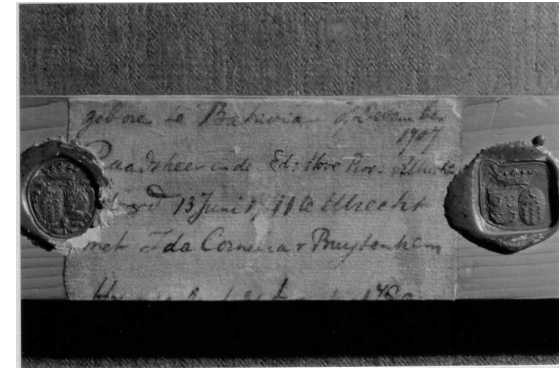 gebore te Batavia 9 December
1707
Raadsheer in de Ed: Hove Prov: Utrecht
13 Junii te Utrecht
met Ida Cornelia v Bruytenhem